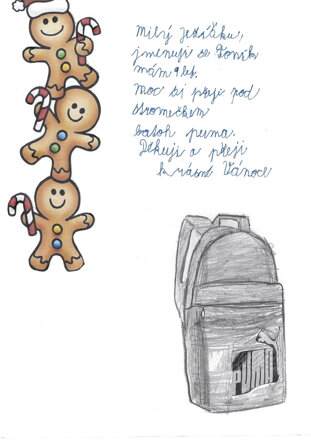 Milý Ježíšku,
jmenuji se Toník
mám 9 let.
Moc si přeji pod
stromečkem
batoh puma.
Děkuji a přeji
krásné Vánoce
PUMA